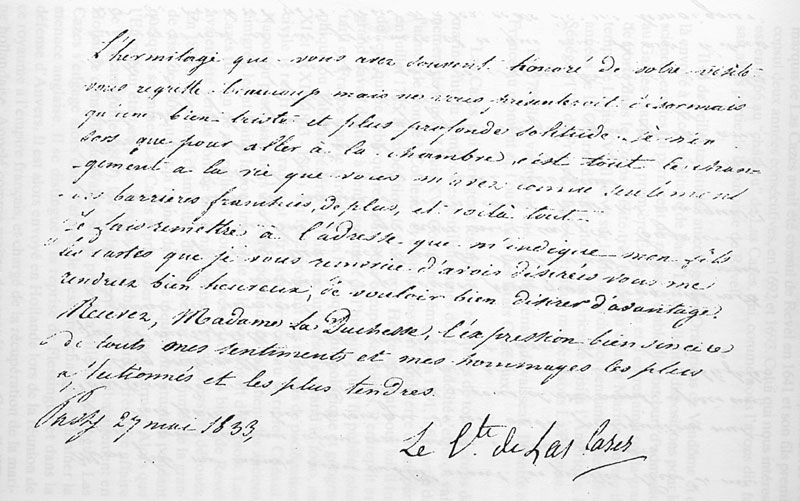 L'hermitage que vous avez souvent honoré de votre visite
vous regrette beaucoup mais ne vous présenteroit désormais
qu'une bien triste et plus profonde solitude. Je n'en
sors que pour aller à la chambre, c'est tout le chan-
gement a la vie que vous m'avez connue seulement
barrieres franchies, de plus, et voilà tout.
Je fais remettre à l'adresse que m'indique mon fils
les cartes que je vous remercie d'avoir désirées vous me
rendriez bien heureux, de vouloir bien désirer d'avantage.
Recevez, Madame La Duchesse, l'expression bien sincère
de touts mes sentiments et mes hommages les plus
affectionnés et les plus tendres.
Passy 27 mai 1833,
Le Cte de Las Cases